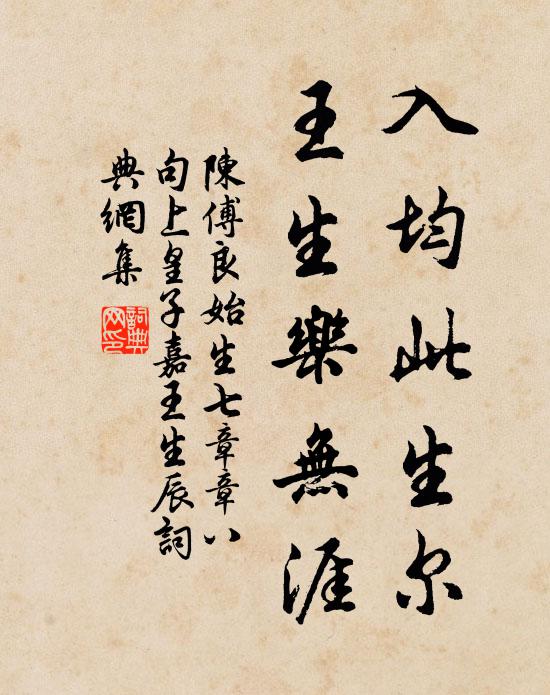 入均此生尔
王生樂無涯
陳傅良始生七章章八
句上皇子嘉王生辰詞
典網集
詞典
网印